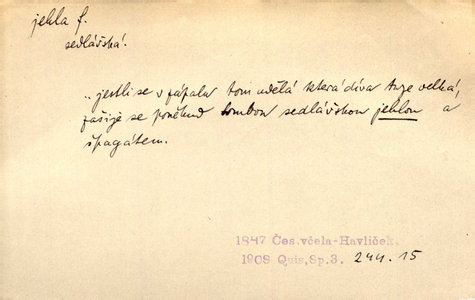 jehla f.
sedlářská.
„jestli se v futrálu tom udělá která díra tuze velká,
zašije se poněkud tou sedlářskou jehlou a
špagátem.
1847 Čes.včela-Havlíček.
1908 Quis,Sp.3. 244.15